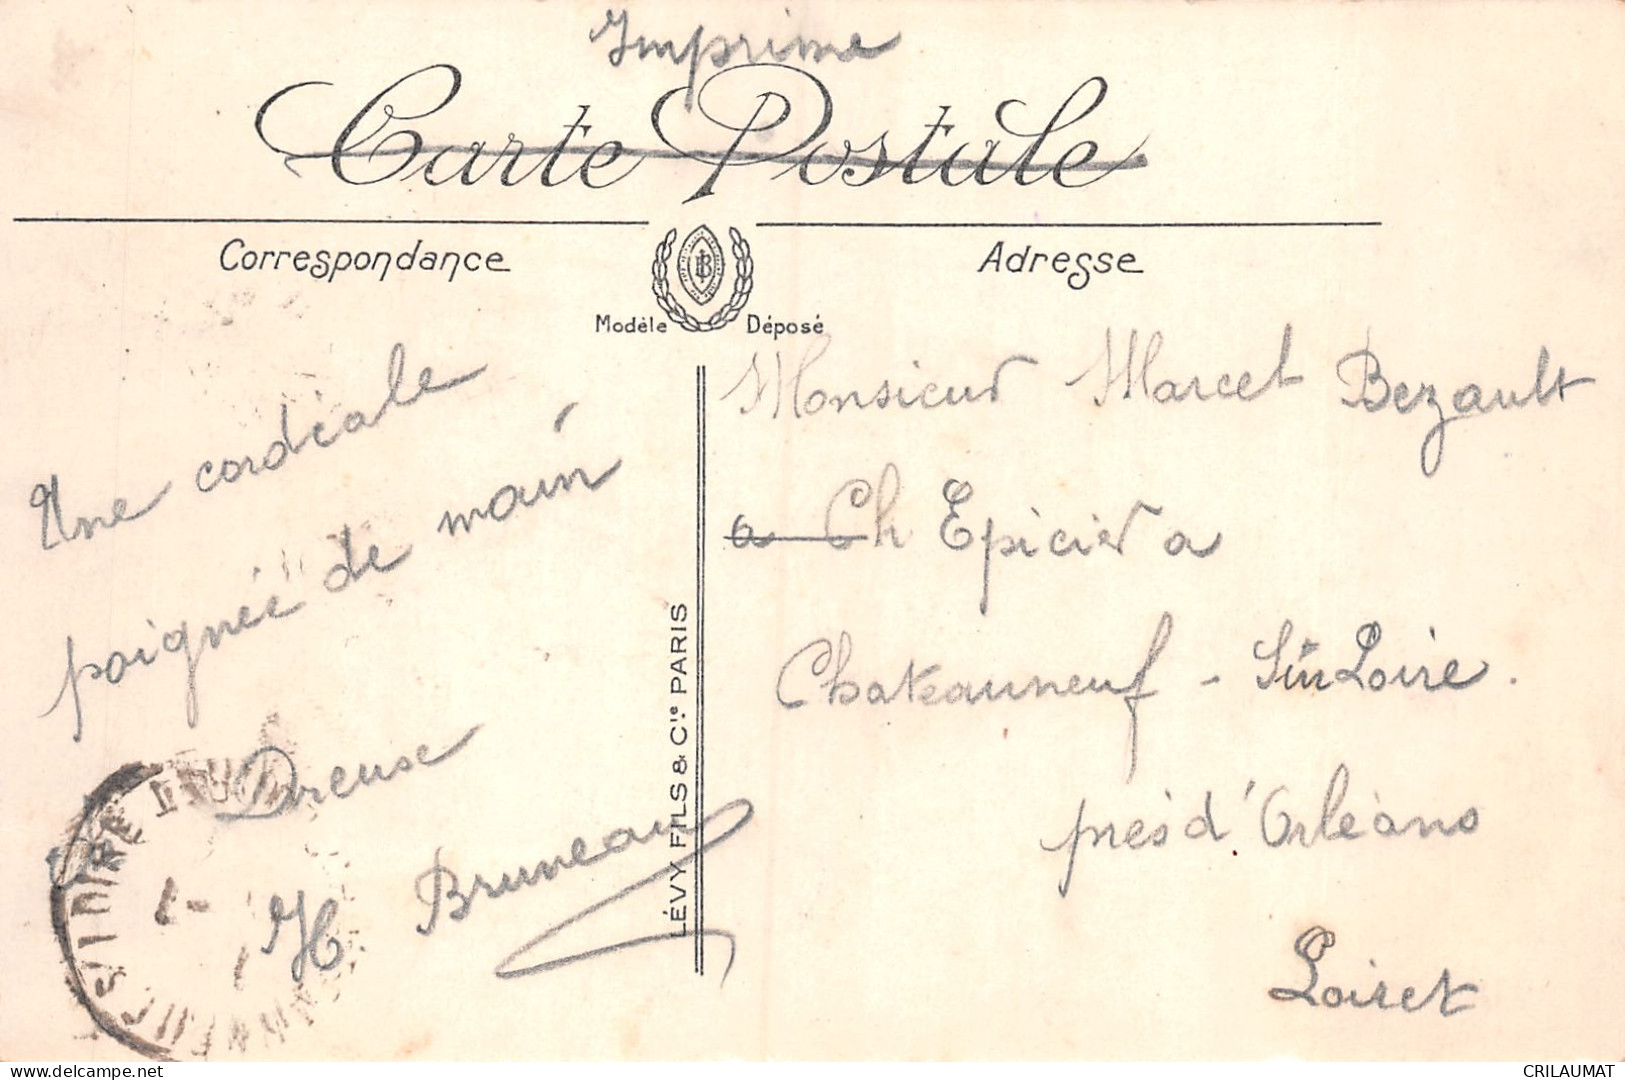 Imprime
Carte Postale
Correspondance
Adresse
Modèle Déposé
Une cordiale
poignée de main
Dreuse
H Bruneau
LÉVY FILS & Cie PARIS
Monsieur Marcel Bezault
a Ch Epicier a
Chateauneuf - Sur Loire.
près d'Orléans
Loiret
delcampe.net
CRILAUMAT